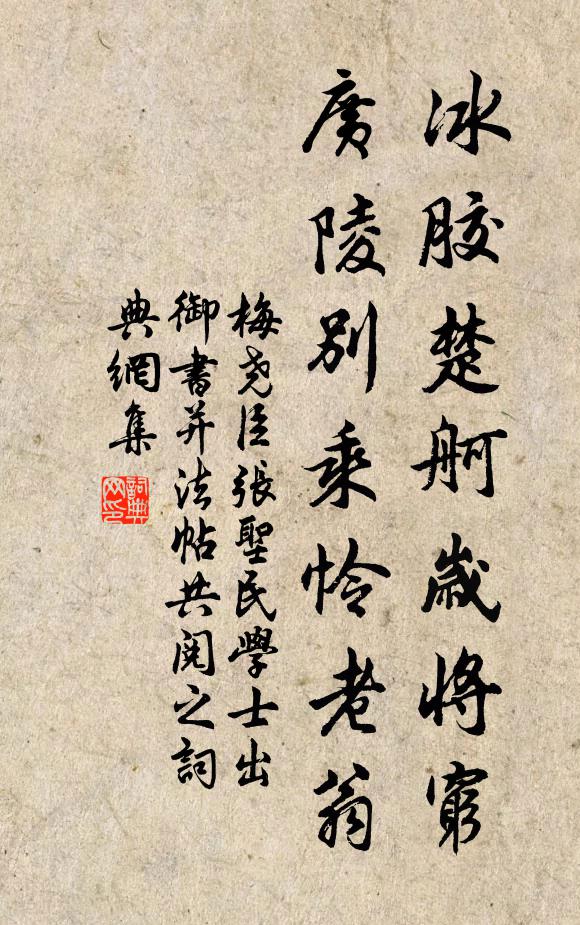 冰膠楚舸歲將窮
廣陵別乘怜老翁
梅堯臣張聖民學士出
御書并法帖共閱之詞
典網集
詞典
网印